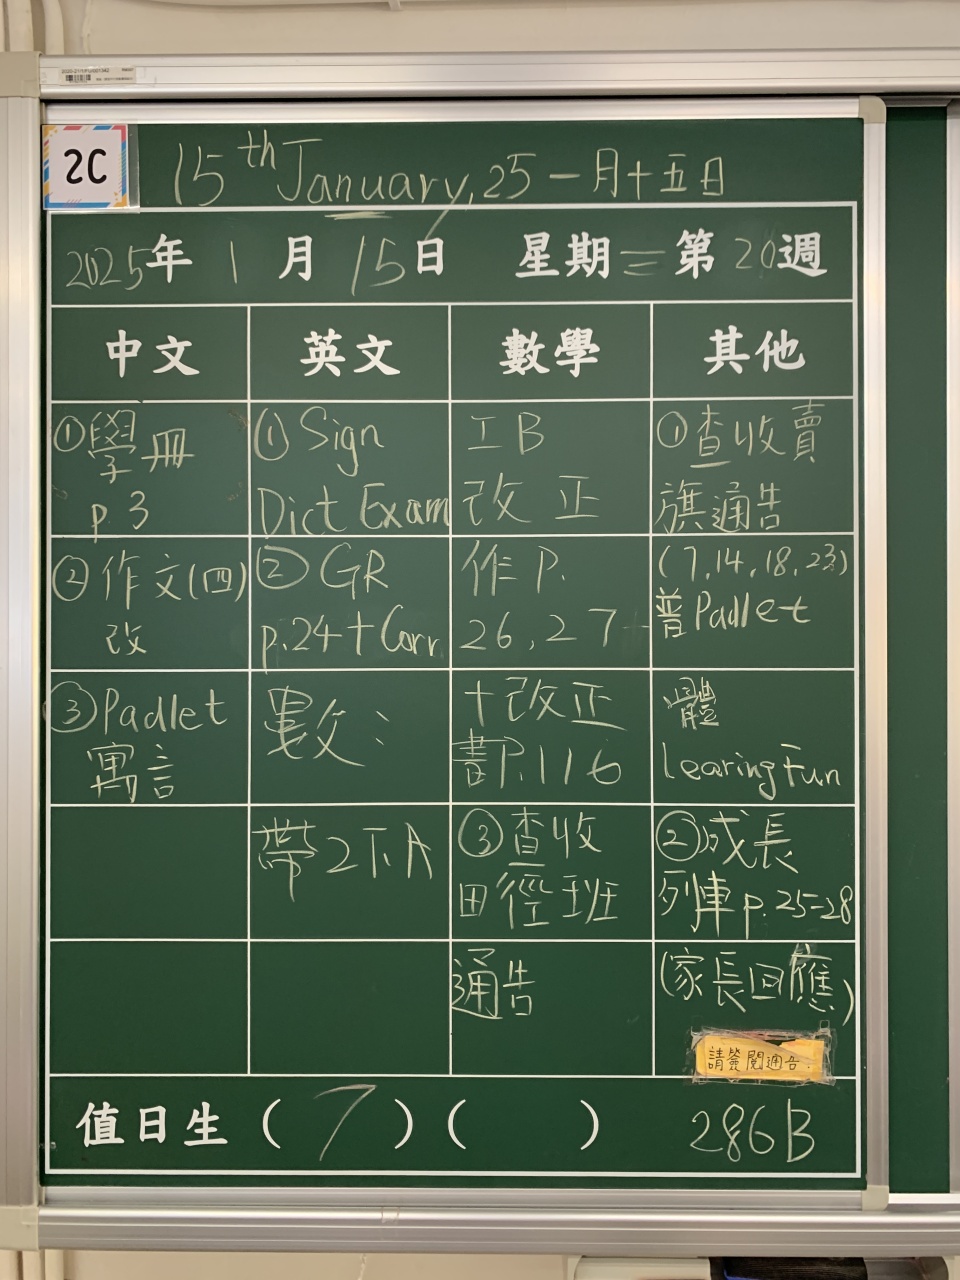 2C
15th January, 25 一月十五日
2025年 1月 15日 星期三 第20週
中文 英文 數學 其他
①學冊
p.3
②作文(四)
改
③Padlet
寓言
①Sign
Dict Exam
②GR
p.24+Corr
數:
帶2下A
工B
改正
作P.
26,27
十改正
書P.116
③查收
田徑班
通告
①查收賣
旗通告
(7,14,18,23)
普Padlet
體
Learing Fun
②成長
列車p.25-28
(家長回應)
請簽閱通告.
值日生(7)( ) 286B